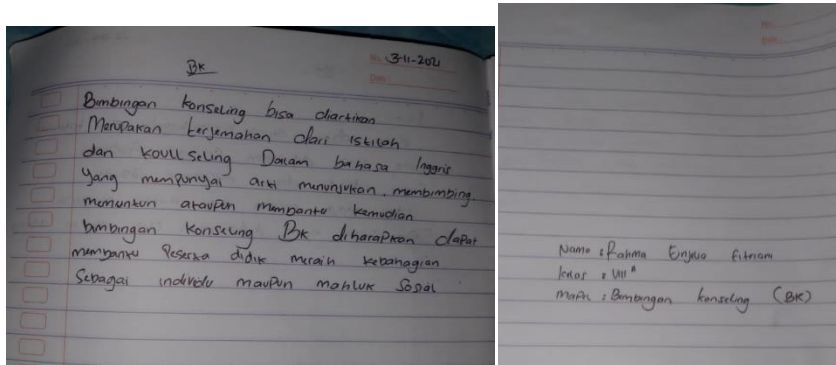 BK
No. 3-11-2021
Date:
Bimbingan konseling bisa diartikan
Merupakan terjemahan dari istilah
dan koullseling Dalam bahasa Inggris
yang mempunyai arti menunjukan, membimbing,
menuntun ataupun membantu kemudian
bimbingan konseling BK diharapkan dapat
membantu Peserta didik meraih kebahagian
Sebagai individu maupun mahluk sosial
Nama : Rahma Fitriani
kelas : VIII
mapel : Bimbingan konseling (BK)